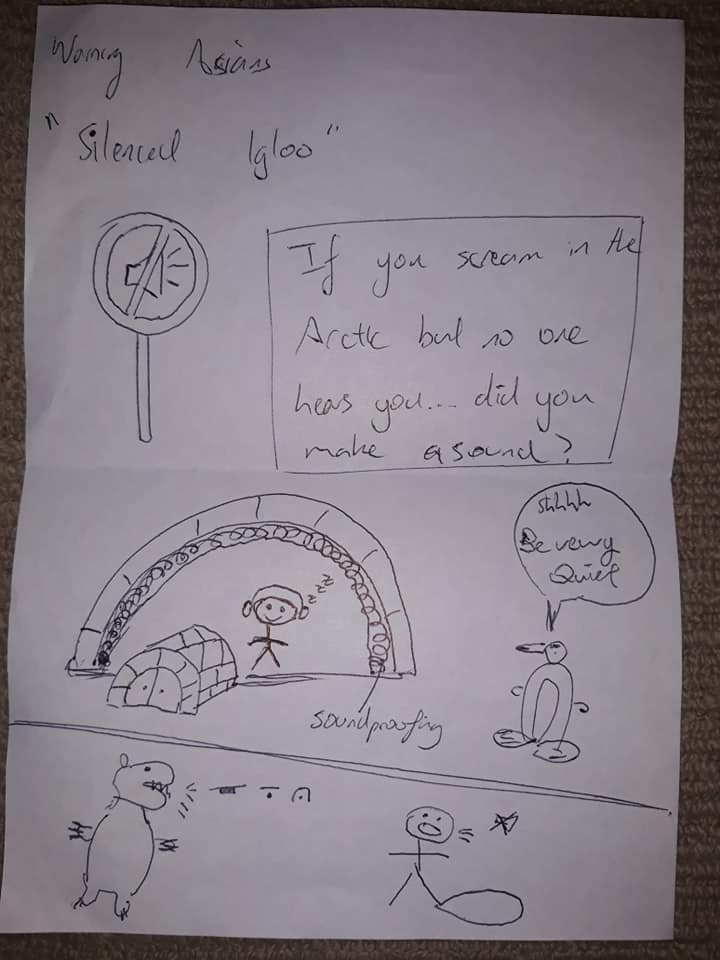 Asians
"Silenced Igloo"
If you scream in the
Arctic but no one
hears you.... did you
make a sound?
shhhh
Be
Quiet
zzzz
soundproofing